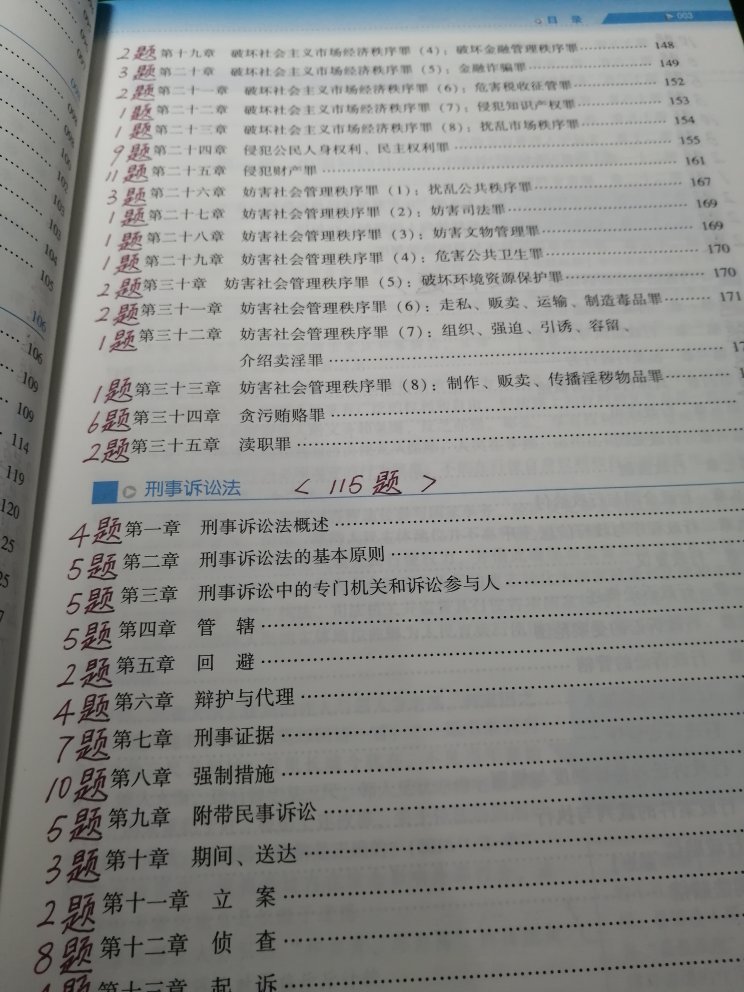 目 录 003
2题 第十九章 破坏社会主义市场经济秩序罪（4）：破坏金融管理秩序罪 148
3题 第二十章 破坏社会主义市场经济秩序罪（5）：金融诈骗罪 149
2题 第二十一章 破坏社会主义市场经济秩序罪（6）：危害税收征管罪 152
1题 第二十二章 破坏社会主义市场经济秩序罪（7）：侵犯知识产权罪 153
1题 第二十三章 破坏社会主义市场经济秩序罪（8）：扰乱市场秩序罪 154
9题 第二十四章 侵犯公民人身权利、民主权利罪 155
11题 第二十五章 侵犯财产罪 161
3题 第二十六章 妨害社会管理秩序罪（1）：扰乱公共秩序罪 167
1题 第二十七章 妨害社会管理秩序罪（2）：妨害司法罪 169
1题 第二十八章 妨害社会管理秩序罪（3）：妨害文物管理罪 169
1题 第二十九章 妨害社会管理秩序罪（4）：危害公共卫生罪 170
2题 第三十章 妨害社会管理秩序罪（5）：破坏环境资源保护罪 170
2题 第三十一章 妨害社会管理秩序罪（6）：走私、贩卖、运输、制造毒品罪 171
1题 第三十二章 妨害社会管理秩序罪（7）：组织、强迫、引诱、容留、
介绍卖淫罪
1题 第三十三章 妨害社会管理秩序罪（8）：制作、贩卖、传播淫秽物品罪
6题 第三十四章 贪污贿赂罪
2题 第三十五章 渎职罪
刑事诉讼法 < 115题 >
4题 第一章 刑事诉讼法概述
5题 第二章 刑事诉讼法的基本原则
5题 第三章 刑事诉讼中的专门机关和诉讼参与人
5题 第四章 管 辖
2题 第五章 回 避
4题 第六章 辩护与代理
7题 第七章 刑事证据
10题 第八章 强制措施
5题 第九章 附带民事诉讼
3题 第十章 期间、送达
2题 第十一章 立 案
8题 第十二章 侦 查
第十三章 起 诉
102
103
104
105
106
106
109
109
114
119
120